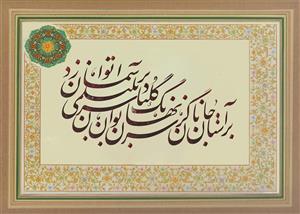 بر آستان جانان گر سر توان نهادن
گلبانگ سربلندی بر آسمان توان زد